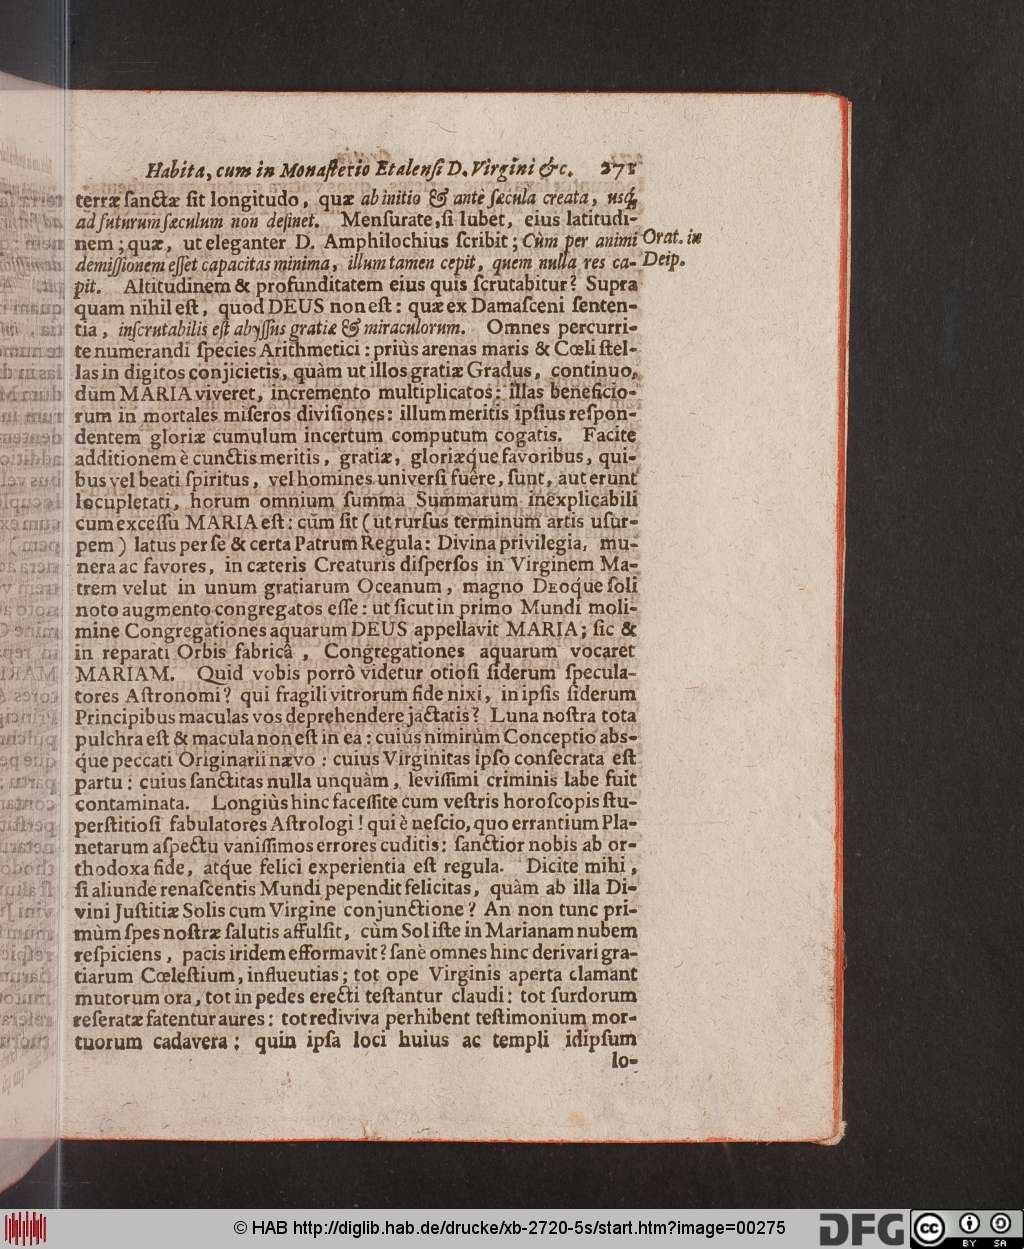 Habita, cum in Monaſterio Etalenſi D. Virgini &c. 271
terræ ſanctæ ſit longitudo, quæ ab initio & antè ſæcula creata, uſq;
ad futurum ſæculum non deſinet. Menſurate, ſi lubet, eius latitudi-
nem; quæ, ut eleganter D. Amphilochius ſcribit; Cùm per animi
Orat. in
demiſſionem eſſet capacitas minima, illum tamen cepit, quem nulla res ca-
Deip.
pit. Altitudinem & profunditatem eius quis ſcrutabitur? Supra
quam nihil eſt, quod DEUS non eſt: quæ ex Damaſceni ſenten-
tia, inſcrutabilis eſt abyſſus gratiæ & miraculorum. Omnes percurri-
te numerandi ſpecies Arithmetici: priùs arenas maris & Cœli ſtel-
las in digitos conjicietis, quàm ut illos gratiæ Gradus, continuo,
dum MARIA viveret, incremento multiplicatos: illas beneficio-
rum in mortales miſeros diviſiones: illum meritis ipſius reſpon-
dentem gloriæ cumulum incertum computum cogatis. Facite
additionem è cunctis meritis, gratiæ, gloriæq́ue favoribus, qui-
bus vel beati ſpiritus, vel homines univerſi fuêre, ſunt, aut erunt
locupletati, horum omnium ſumma Summarum inexplicabili
cum exceſſu MARIA eſt: cùm ſit (ut rurſus terminum artis uſur-
pem) latus per ſe & certa Patrum Regula: Divina privilegia, mu-
nera ac favores, in cæteris Creaturis diſperſos in Virginem Ma-
trem velut in unum gratiarum Oceanum, magno DEOq́ue ſoli
noto augmento congregatos eſſe: ut ſicut in primo Mundi moli-
mine Congregationes aquarum DEUS appellavit MARIA; ſic &
in reparati Orbis fabricâ, Congregationes aquarum vocaret
MARIAM. Quid vobis porrô videtur otioſi ſiderum ſpecula-
tores Aſtronomi? qui fragili vitrorum fide nixi, in ipſis ſiderum
Principibus maculas vos deprehendere jactatis? Luna noſtra tota
pulchra eſt & macula non eſt in ea: cuius nimirùm Conceptio abs-
q́ue peccati Originarii nævo: cuius Virginitas ipſo conſecrata eſt
partu: cuius ſanctitas nulla unquàm, leviſſimi criminis labe fuit
contaminata. Longiùs hinc faceſſite cum veſtris horoſcopis ſtu-
perſtitioſi fabulatores Aſtrologi! qui è neſcio, quo errantium Pla-
netarum aſpectu vaniſſimos errores cuditis: ſanctior nobis ab or-
thodoxa fide, atq́ue felici experientia eſt regula. Dicite mihi,
ſi aliunde renaſcentis Mundi pependit felicitas, quàm ab illa Di-
vini Juſtitiæ Solis cum Virgine conjunctione? An non tunc pri-
mùm ſpes noſtræ ſalutis affulſit, cùm Sol iſte in Marianam nubem
reſpiciens, pacis iridem efformavit? ſanè omnes hinc derivari gra-
tiarum Cœleſtium, influeutias; tot ope Virginis aperta clamant
mutorum ora, tot in pedes erecti teſtantur claudi: tot ſurdorum
reſeratæ fatentur aures: tot rediviva perhibent teſtimonium mor-
tuorum cadavera; quin ipſa loci huius ac templi idipſum
lo-
© HAB http://diglib.hab.de/drucke/xb-2720-5s/start.htm?image=00275
DFG
cc
BY SA